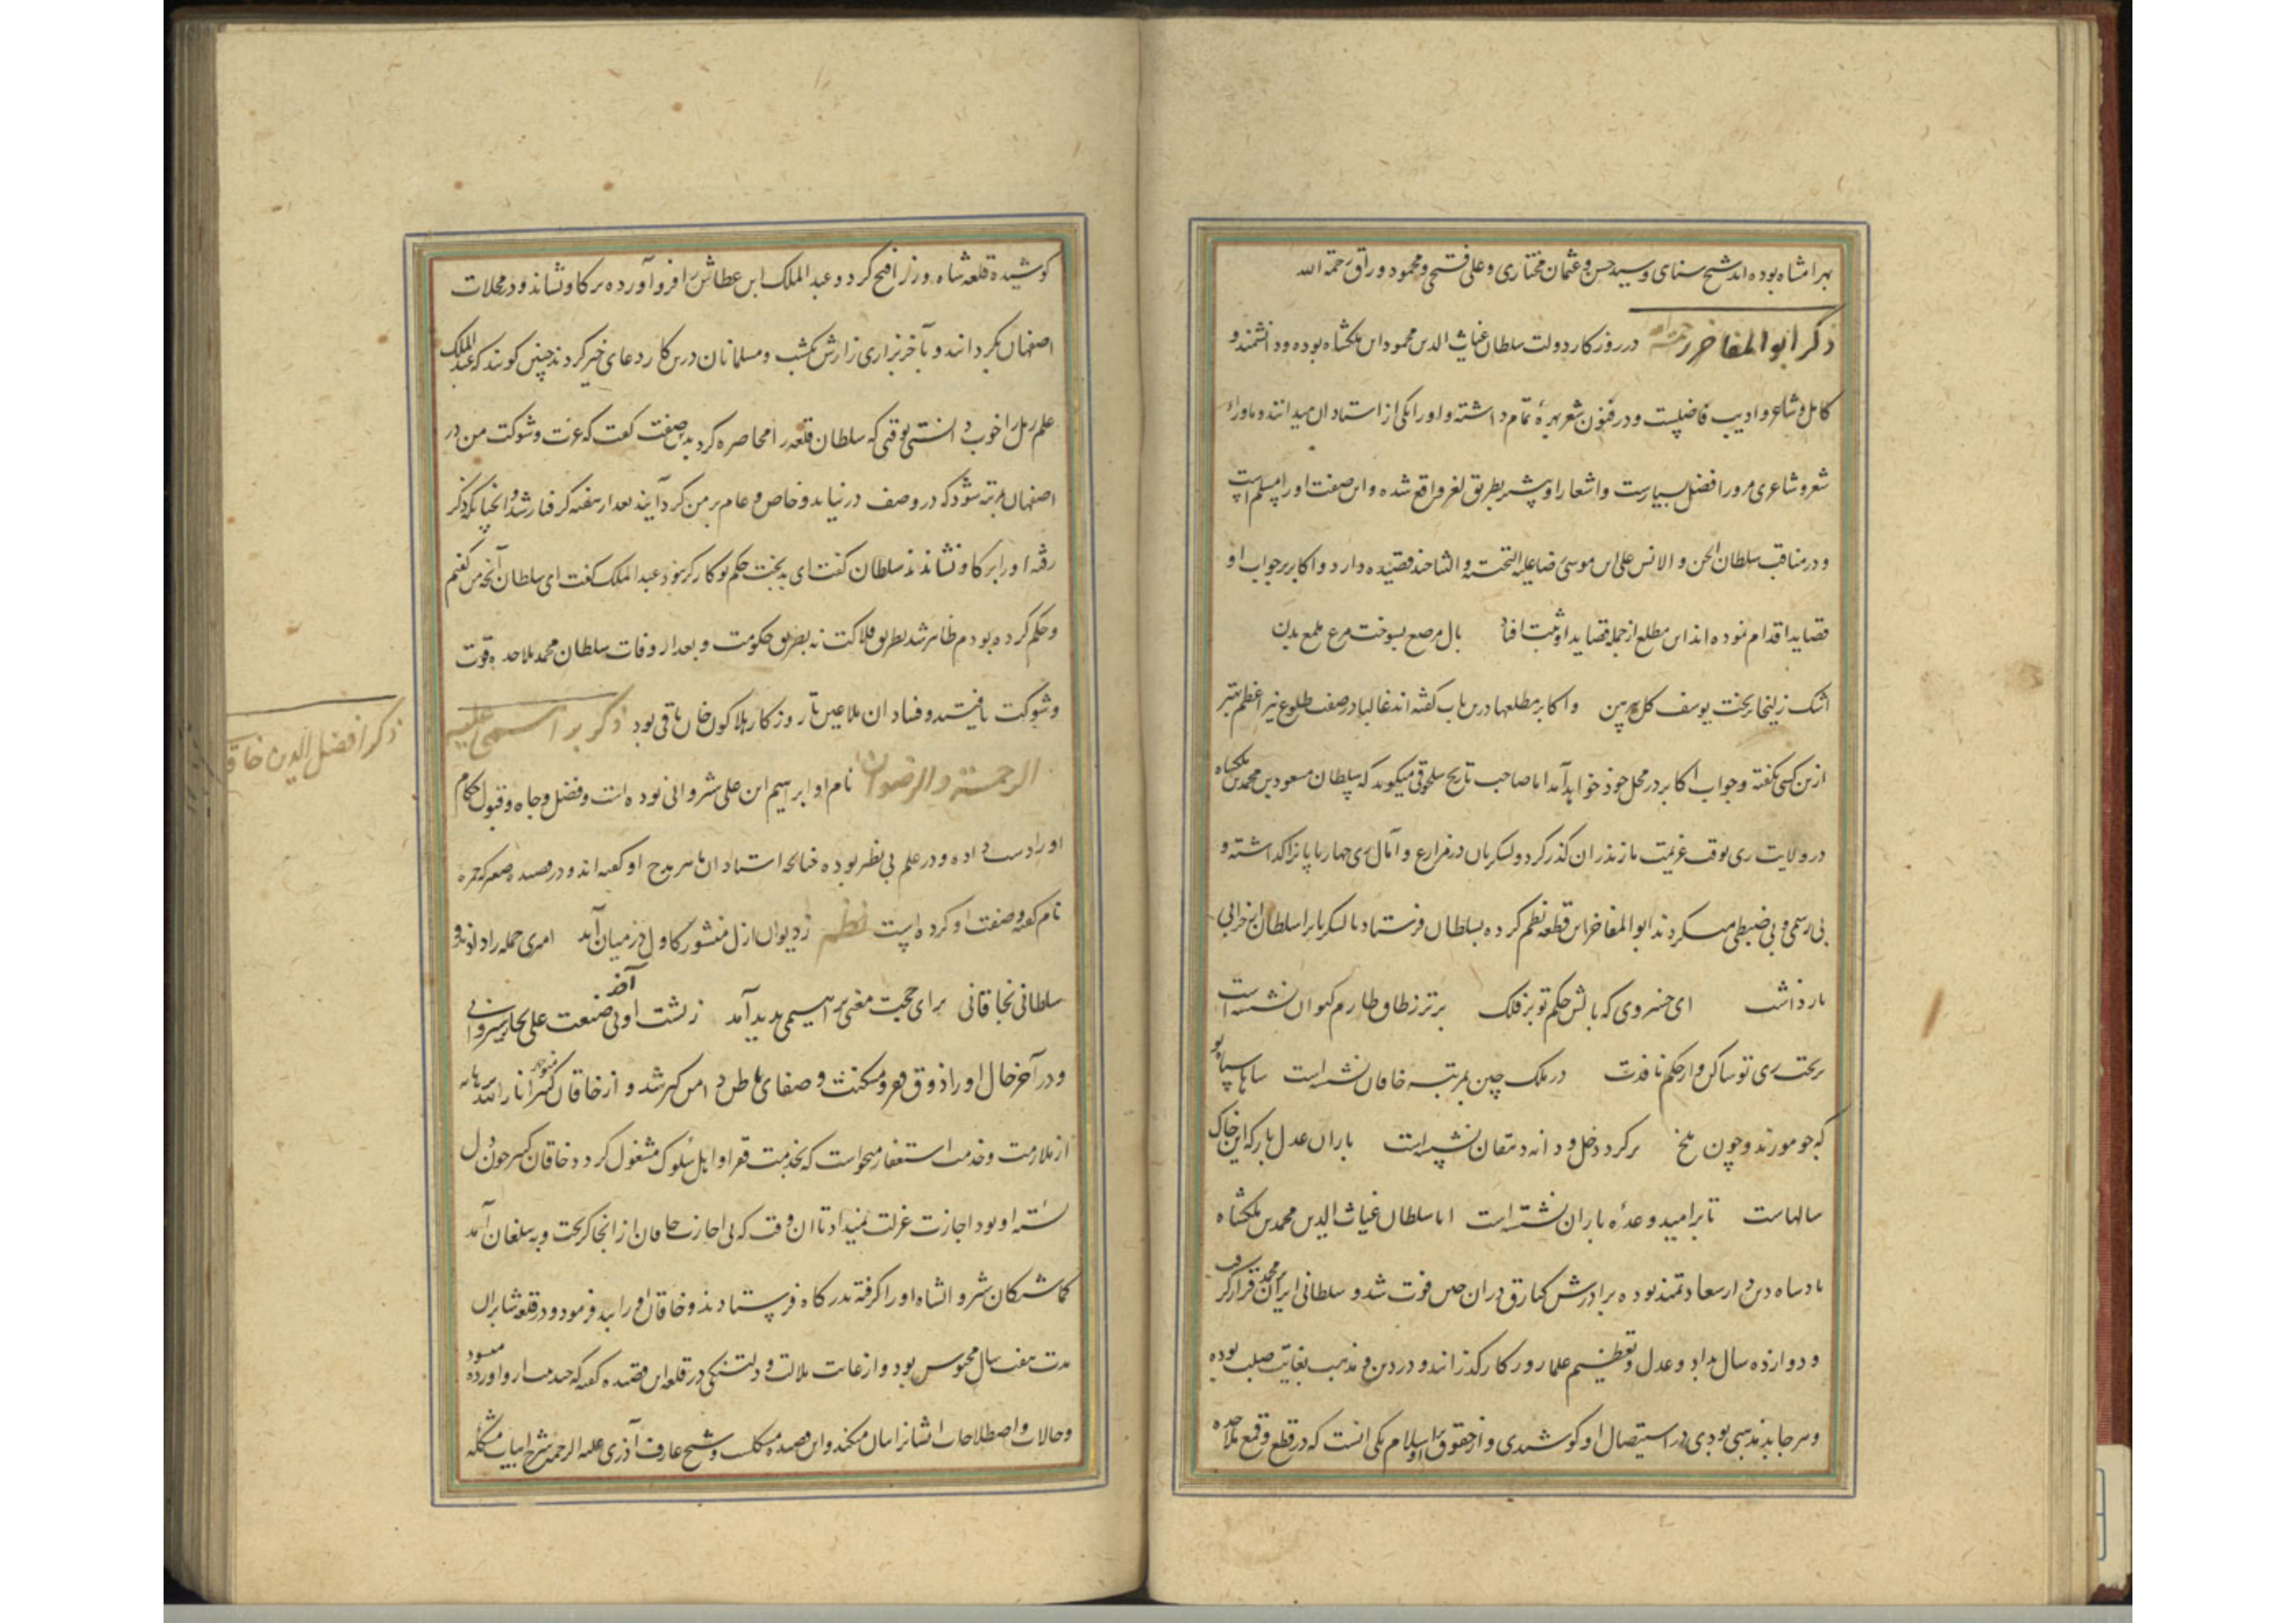 بهرامشاه بوده‌اند شیخ سنای و سید حسن و عثمان مختاری و علی فتحی و محمود وراق رحمة الله
ذکر ابو المفاخر در روزکار دولت سلطان غیاث الدین محمود ابن ملکشاه بوده و دانشمند و
کامل و شاعر و ادیب فاضلست و در فنون شعر بهرهٔ تمام داشته و او را یکی از استادان میدانند و ماورا
شعر و شاعری مرو را فضل بسیارست و اشعار او بیشتر بطریق لغز واقع شده و این صفت او را مسلم است
و در مناقب سلطان الجن و الانس علی ابن موسی رضا علیه التحیة و الثنا چند قصیده دارد و اکابر بر جواب او
قصاید اقدام نموده‌اند این مطلع از جمله قصاید او ثبت افتاد بال مرصع بسوخت مرغ ملمع بدن
اشک زلیخا بریخت یوسف کل پیرهن و اکابر مطلعها درین باب کفته‌اند غالبا در صفت طلوع نیر اعظم بهتر
ازین کسی نکفته و جواب اکابر در محل خود خواهد آمد اما صاحب تاریخ سلجوقی میکوید که سلطان مسعود بن محمد بن ملکشاه
در ولایت ری بوقت عزیمت مازندران کذر کرد و لشکریان در مزارع و آمال ری چهارپایانرا کذاشته و
بی رسمی و بی ضبطی میکردند ابو المفاخر این قطعه نظم کرده بسلطان فرستاد تا لشکریانرا سلطان از خرابی
بازداشت ای خسروی که بالش حکم تو بر فلک برتر ز طاق طارم کیوان نشسته است
بر تخت ری تو ساکن و از حکم نافذت در ملک چین بمرتبه خاقان نشسته است شاها سپاه تو
که چو مورند و چون ملخ بر کرد دخل و دانه دهقان نشسته است باران عدل بار که این خاک
سالهاست تا بر امید وعدهٔ باران نشسته است اما سلطان غیاث الدین محمد بن ملکشاه
پادشاه دین دار سعادتمند بوده برادرش برکیارق در ان حین فوت شد و سلطانی ایران بر محمد قرار کرفت
و دوازده سال بداد و عدل و تعظیم علما روزکار کذرانید و در دین و مذهب بغایت صلب بوده
و هر جا بد مذهبی بودی در استیصال او کوشیدی و از حقوق او بر اسلام یکی انست که در قطع و قمع ملاحده
کوشیده قلعه شاه‌ دز را فتح کرد و عبد الملک ابن عطاش را فرو آورده بر کاو نشاند و در محلات
اصفهان بکردانید و بآخر بزاری زارش بکشت و مسلمانان درین کار دعای خیر کردند چنین کویند که عبد الملک
علم رمل را خوب دانستی بوقتی که سلطان قلعه را محاصره کرد بدین صفت کفت که عزت و شوکت من در
اصفهان بمرتبه شود که در وصف درنیاید و خاص و عام بر من کرد آیند بعد از هفته کرفتار شد و انچنانکه ذکر
رفته او را بر کاو نشاندند سلطان کفت ای بدبخت حکم تو کارکر نبود عبد الملک کفت ای سلطان آنچه من کفتم
و حکم کرده بودم ظاهر شد بطریق فلاکت نه بطریق حکومت و بعد از وفات سلطان محمد ملاحده قوت
و شوکت یافتند و فساد ان ملاعین تا روزکار هلاکو خان باقی بود ذکر بر اسمی علیه
الرحمة والرضوان نام او ابراهیم ابن علی شروانی بوده است و فضل و جاه و قبول حکام
او را دست داده و در علم بی نظیر بوده چنانچه استادان ماهر مدح او کفته‌اند و در قصیده
نام کفته و صفت او کرده است نظم ز دیوان ازل منشور کاول در میان آمد امری جمله را دادند و
سلطانی بخاقانی برای حجت معنی براهیمی پدید آمد ز پشت آذر صنعت علی نجار شروانی
و در آخر حال او را ذوق فقر و مسکنت و صفای باطن دامن کیر شد و از خاقان کبیر منوچهر انار الله برهانه
از ملازمت و خدمت استعفا میخواست که بخدمت فقرا و اهل سلوک مشغول کردد خاقان کبیر چون دل
بسته او بود اجازت عزلت نمیداد تا ان وقت که بی اجازت خاقان از انجا کریخت و به بیلقان آمد
کماشتکان شروانشاه او را کرفته بدرکاه فرستادند و خاقان او را بند فرمود و در قلعه شابران
مدت هفت سال محبوس بود و از غایت ملالت و دلتنکی در قلعه این قصیده کفته که
و حالات و اصطلاحات ایشانرا بیان میکند و این قصیده مشکلست و شیخ عارف آذری علیه الرحمه شرح ابیات مشکله
ذکر افضل الدین خاقا